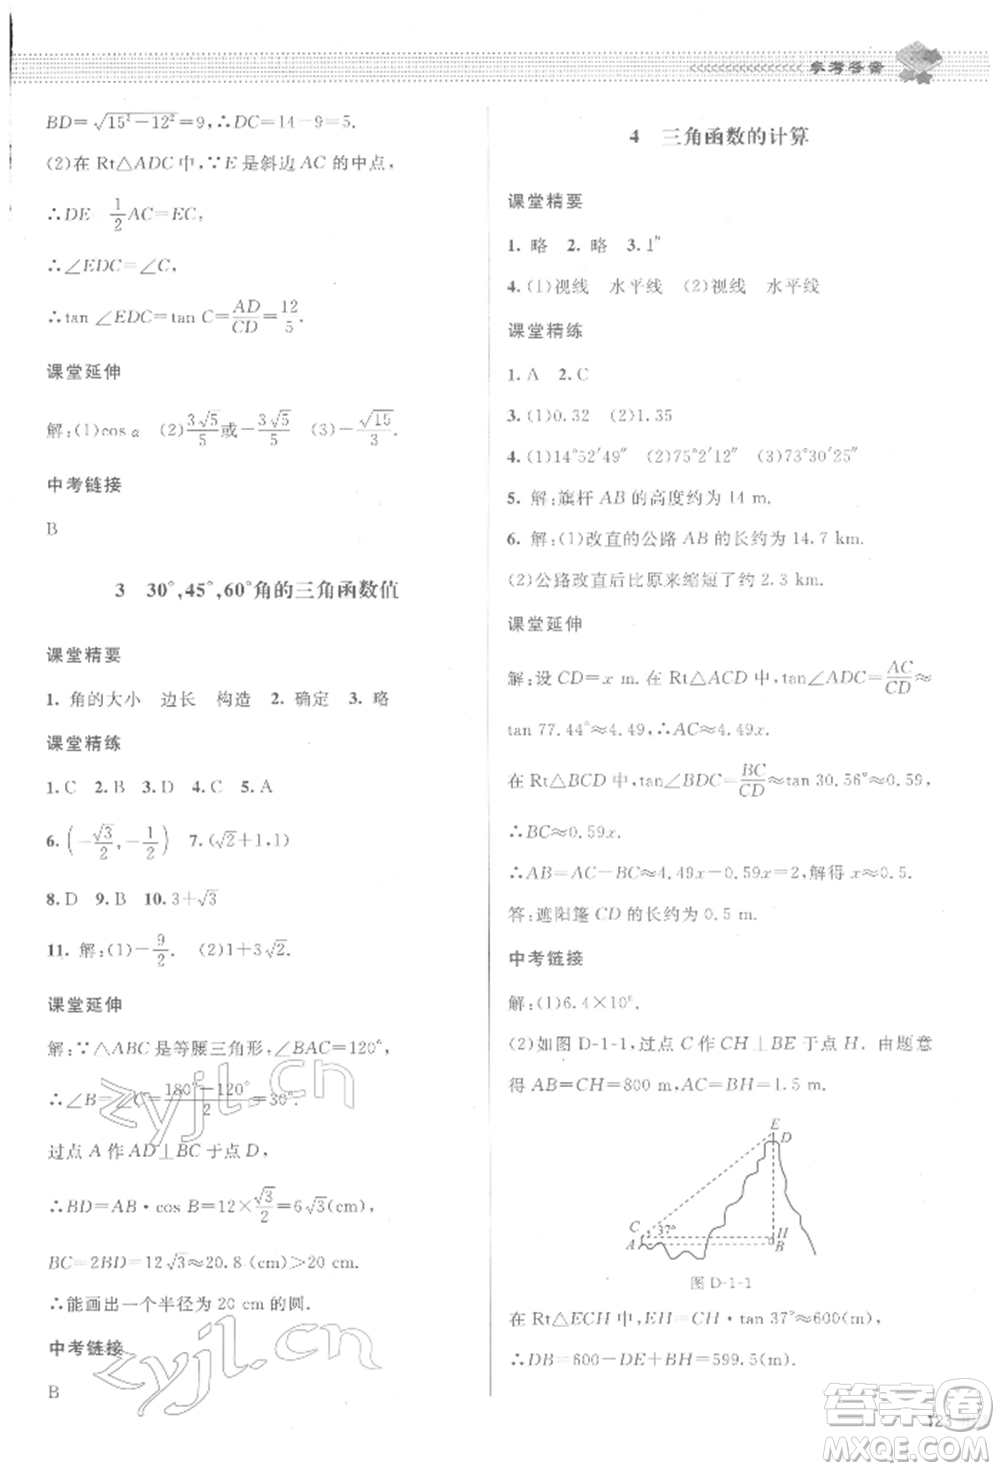 参考答案
BD=√(15²−12²)=9,∴DC=14−9=5.
(2)在 Rt△ADC 中,∵E 是斜边 AC 的中点,
∴DE=1/2 AC=EC,
∴∠EDC=∠C,
∴tan ∠EDC=tan C=AD/CD=12/5.
课堂延伸
解:(1)cos α (2)3√5/5或−3√5/5 (3)−√15/3.
中考链接
B
3 30°,45°,60°角的三角函数值
课堂精要
1. 角的大小 边长 构造 2. 确定 3. 略
课堂精练
1. C 2. B 3. D 4. C 5. A
6. (−√3/2,−1/2) 7. (√2+1,1)
8. D 9. B 10. 3+√3
11. 解:(1)−9/2. (2)1+3√2.
课堂延伸
解:∵△ABC 是等腰三角形,∠BAC=120°,
∴∠B=∠C=(180°−120°)/2=30°.
过点 A 作 AD⊥BC 于点 D,
∴BD=AB·cos B=12×√3/2=6√3(cm)
BC=2BD=12√3≈20.8(cm)>20 cm.
∴能画出一个半径为 20 cm 的圆.
中考链接
B
4 三角函数的计算
课堂精要
1. 略 2. 略 3. 1″
4. (1)视线 水平线 (2)视线 水平线
课堂精练
1. A 2. C
3. (1)0.32 (2)1.35
4. (1)14°52′49″ (2)75°2′12″ (3)73°30′25″
5. 解:旗杆 AB 的高度约为 14 m.
6. 解:(1)改直的公路 AB 的长约为 14.7 km.
(2)公路改直后比原来缩短了约 2.3 km.
课堂延伸
解:设 CD=x m. 在 Rt△ACD 中,tan∠ADC=AC/CD≈
tan 77.44°≈4.49,∴AC≈4.49x.
在 Rt△BCD 中,tan∠BDC=BC/CD≈tan 30.56°≈0.59,
∴BC≈0.59x.
∴AB=AC−BC≈4.49x−0.59x=2. 解得 x≈0.5.
答:遮阳篷 CD 的长约为 0.5 m.
中考链接
解:(1)6.4×10⁶.
(2)如图 D-1-1,过点 C 作 CH⊥BE 于点 H. 由题意
得 AB=CH=800 m,AC=BH=1.5 m.
E
D
C
37°
H
A
B
图 D-1-1
在 Rt△ECH 中,EH=CH·tan 37°≈600(m)
∴DB=600−DE+BH=599.5(m).
123
zyjl.cn
zyjl.cn
答案圈
MXQE.COM